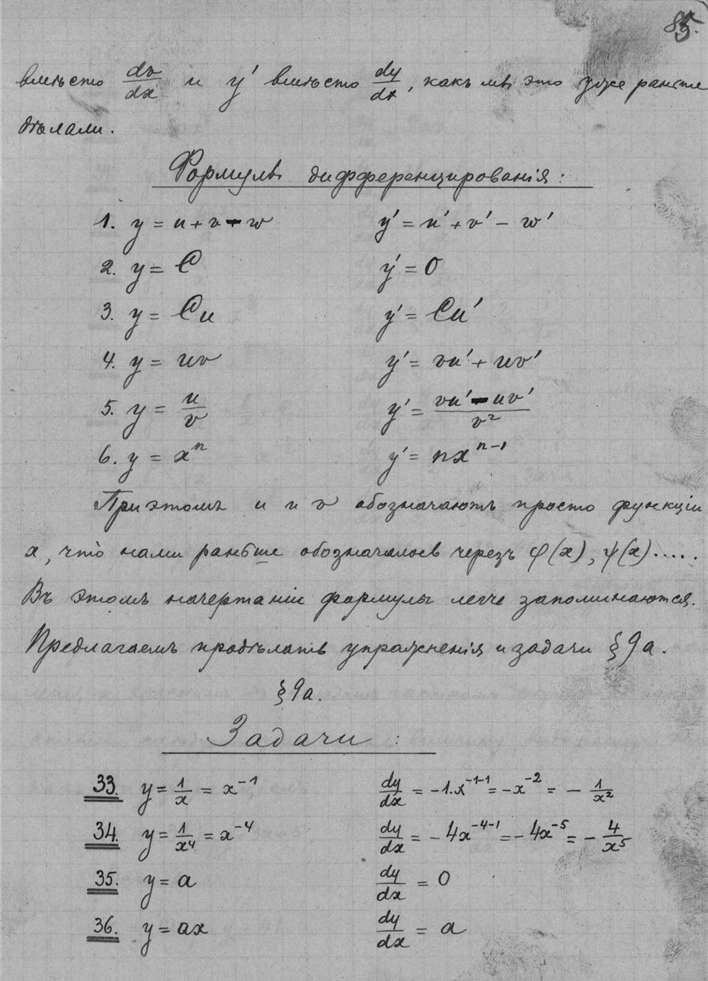 85.
вмѣсто dv/dx и y′ вмѣсто dy/dx, какъ мы это уже раньше
дѣлали.
Формулы дифференцированія:
1. y = u + v - w y′ = u′ + v′ - w′
2. y = C y′ = 0
3. y = Cu y′ = Cu′
4. y = uv y′ = vu′ + uv′
5. y = u/v y′ = (vu′ - uv′)/v²
6. y = xⁿ y′ = nxⁿ⁻¹
При этомъ u и v обозначаютъ просто функціи
x, что нами раньше обозначалось черезъ φ(x), ψ(x).....
Въ этомъ начертаніи формулы легче запоминаются.
Предлагаемъ продѣлать упражненія и задачи § 9а.
§ 9а.
Задачи:
33. y = 1/x = x⁻¹ dy/dx = -1.x⁻¹⁻¹ = -x⁻² = - 1/x²
34. y = 1/x⁴ = x⁻⁴ dy/dx = -4x⁻⁴⁻¹ = -4x⁻⁵ = - 4/x⁵
35. y = a dy/dx = 0
36. y = ax dy/dx = a